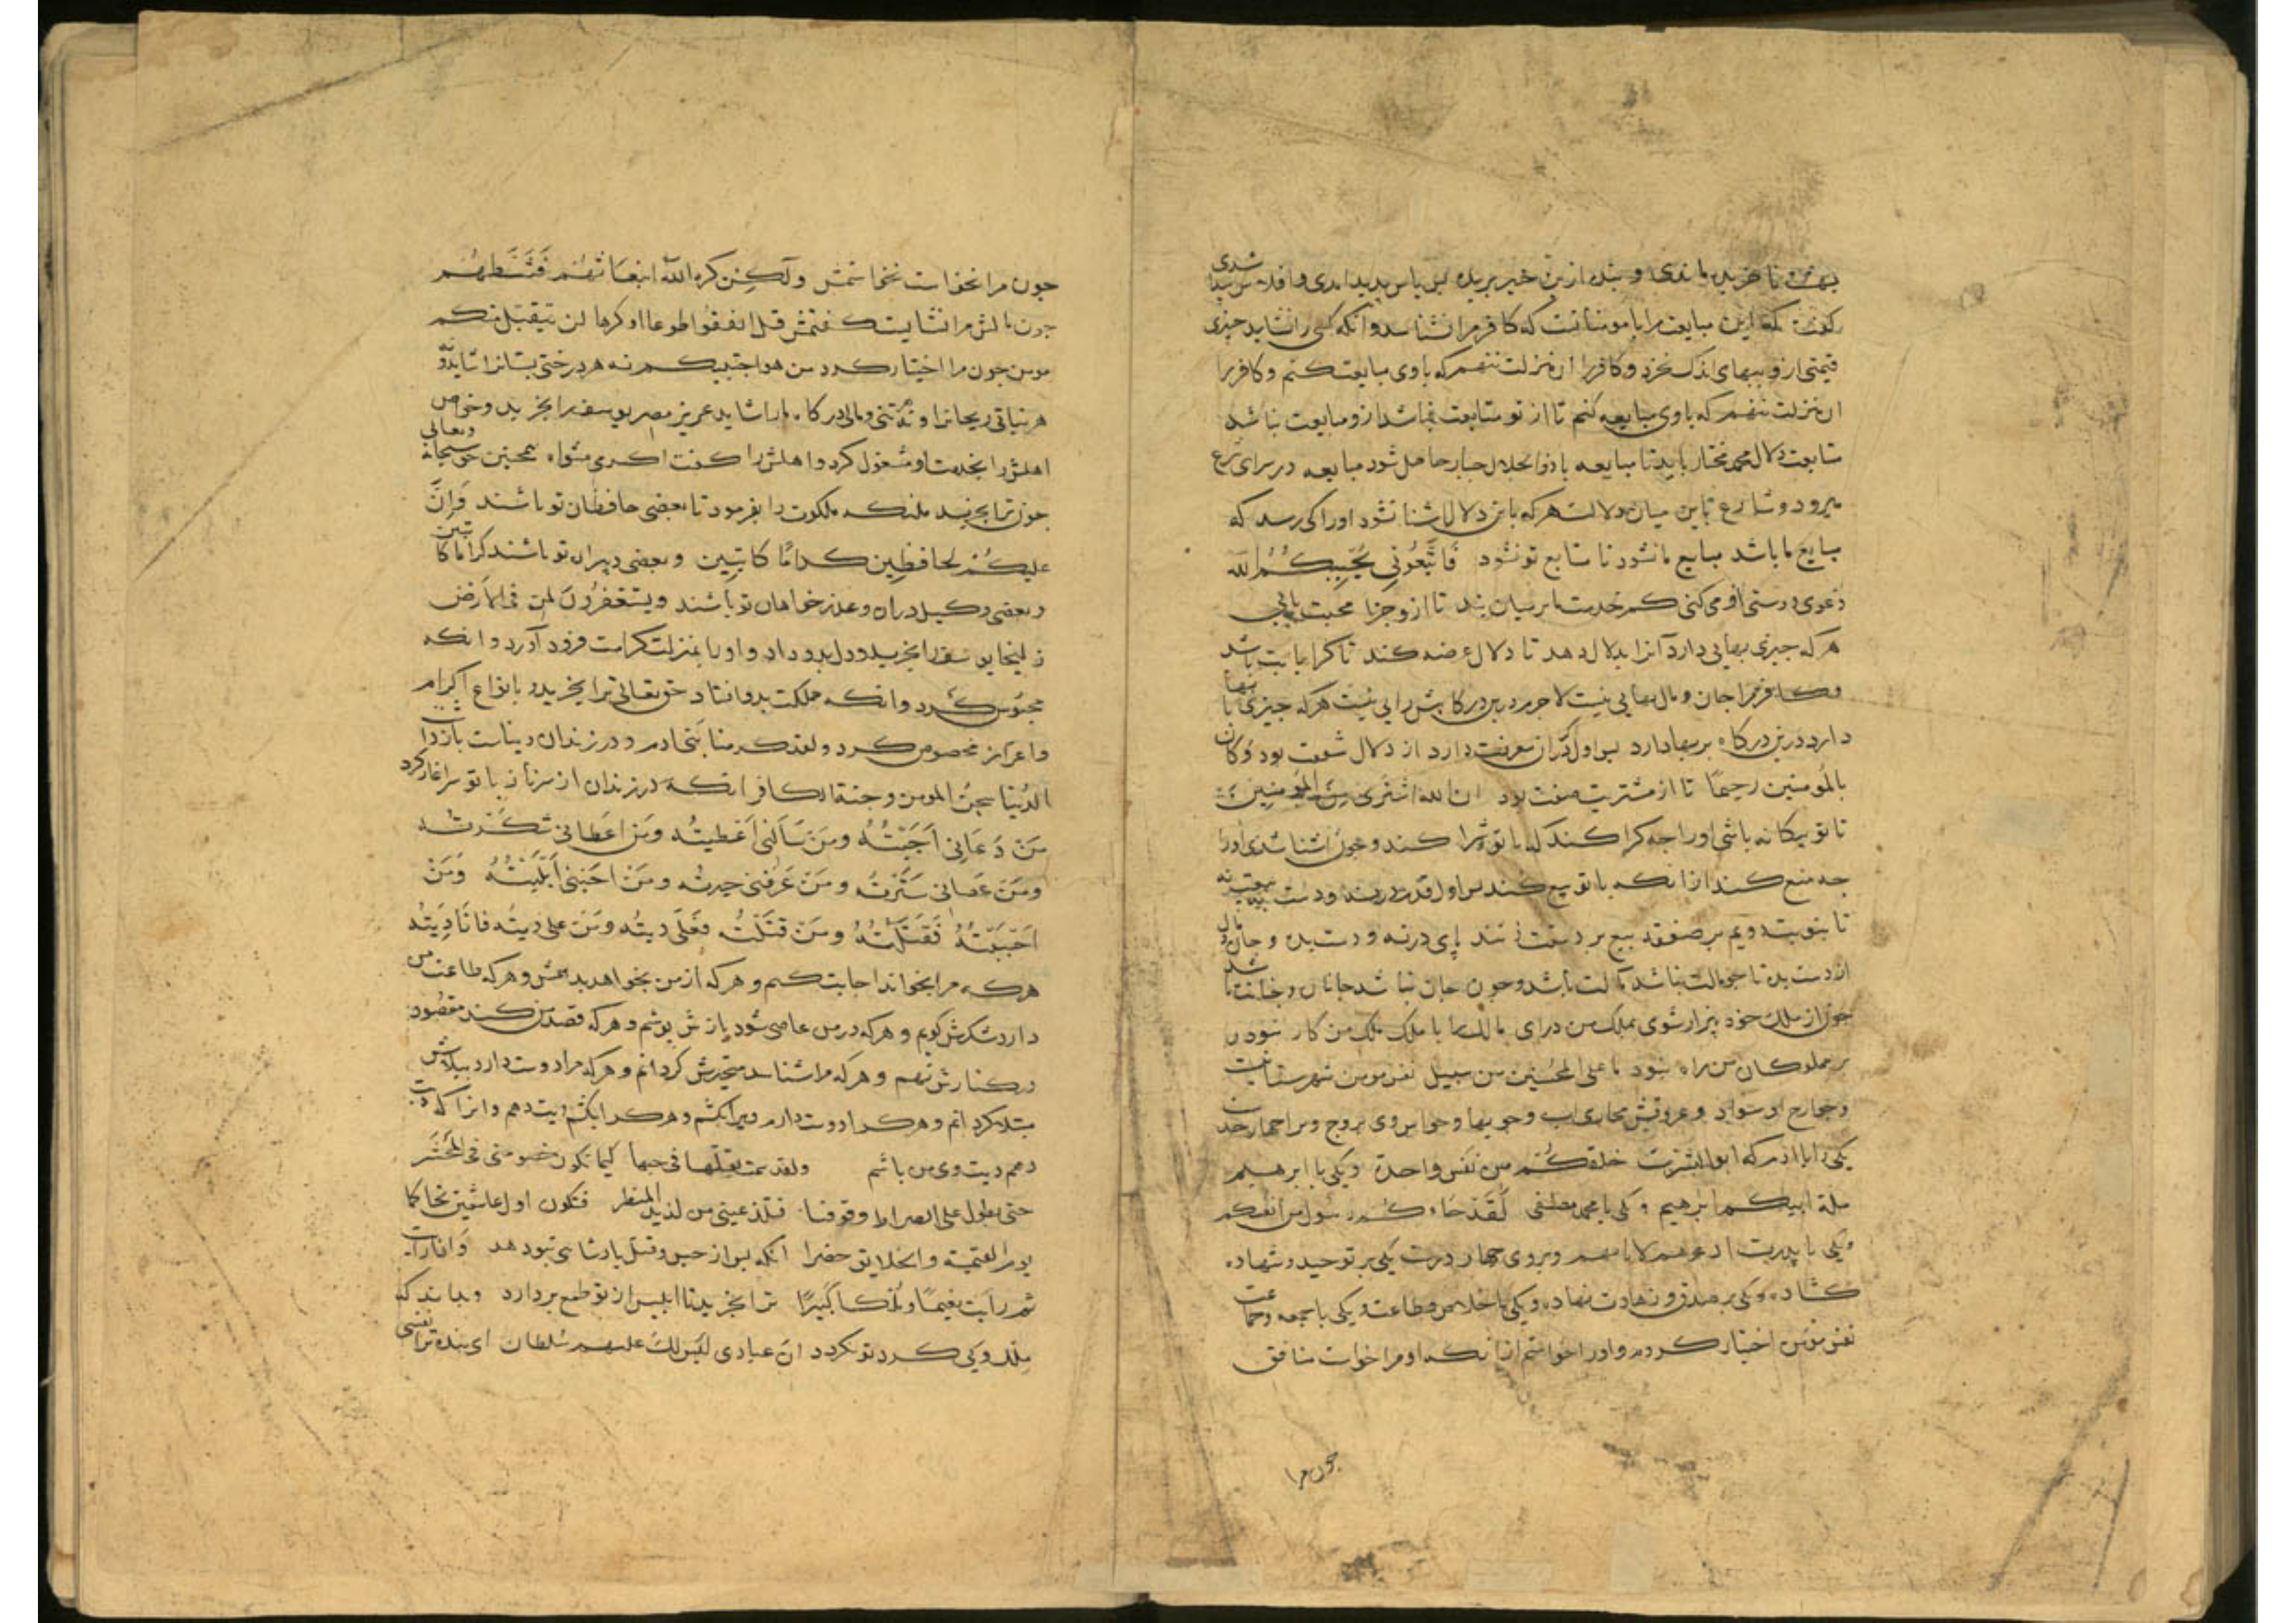 کفت که این مبایعت مرا با مومنانست که کافر مرا نشناسد وآنکه کسی را نشاید چیزی
قیمتی ازو ببهای اندک نخرد وکافر را آن منزلت ننهم که باوی مبایعت کنم وکافر را
ان منزلت ننهم که باوی مبایعه کنم تا از تو متابعت نباشد ازو مبایعت نباشد
متابعت دلال محمد مختار باید تا مبایعه با ذوالجلال جبار حاصل شود مبایعه در سرای شرع
میرود وشارع باین میان دلالست هر که باین دلال اشنا نشود اورا کی رسد که
مبایع ما باشد مبایع ما نشود تا متابع تو نشود فَاتَّبِعُونِي يُحْبِبْكُمُ اللّه
دعوی دوستی او می کنی کمر خدمت ما بر میان بند تا ازو جزا محبت یابی
هر که چیزی بهایی دارد آنرا بدلال دهد تا دلال عرضه کند تا کرا بابت باشد
وکافر را جان ومال بهایی نیست لاجرم درین درکا بش رایی نیست هر که چیزی با بها
دارد درین درکاه بر بها دارد پس اول کران معرفت دارد از دلال شفقت بود وَكَانَ
بالمُومنين رحيمًا تا از مشتریت صفت بود ان الله اشتری مِنَ المُومِنِينَ
تا تو بیکانه باشی اورا چه کرا کند که با تو شرا کند وچون اشنا شدی اورا
چه منع کند از انکه با تو بیع کند پس اول قدم در نه ودست بیعت
تا بتو بیندیم بر صفقه بیع بر دست زنند پای در نه ودست بده وجان ومال
از دست بده تا چو مالت نباشد مالت باشد وچون جان نباشد جانان وجانت باشد
چون از ملک خود بیزار شوی بملک من درای مالک را با ملک ملک من کار نبود
بر مملوکان من راه نبود ما علی المُحسِنین من سبیل نفس مومن شهرستانیست
وجوارح او سواد وعروقش مجاری اب وجویها وحواس وی بروج وبر اجهار حد
یکی را با ادم که ابو البشرست خلقكُم من نفس واحدة ویکی با ابرهیم
ملة ابیکم ابرهیم ویکی با محمد مصطفی لَقَد جَاءكُم رسُول من انفسكم
ویکی با پدرت ادعوهم لابائهم وبروی چهار درست یکی بر توحید وشهاده
کشاده ویکی بر صدق وزهادت نهاده ویکی با خلاص وطاعت ویکی با جمعه وجماعت
نفس مومن اختیار کردم واورا خواستم از انکه او مرا خواست منافق
چون مرا
چون مرا نخواست نخواستمش ولَكِن كره اللّه انبعَاثهُم فَثَبَّطَهُم
چون مالش مرا نشایست کفتمش قل انفقوا طوعا او کرها لن یتقبل منکم
مومن چون مرا اختیار کرد من هو اجتبیکم نه هر درختی بستانرا شاید ونه
هر نباتی ریحانرا ونه تنی ومالی درکاه مارا شاید عزیز مصر یوسف را بخرید وخواص
اهلش را بخدمت او مشغول کرد واهلش را کفت اکرمی مثواه همچنین حق سبحانه وتعالی
چون ترا بخرید ملئکه ملکوت را بفرمود تا بعضی حافظان تو باشند وَاِنَّ
عليكُم لحافظِين كرامًا كاتِبين وبعضی دبیران تو باشند کراما کاتبین
وبعضی وکیل دراه وعذر خواهان تو باشند ویستغفرُونَ لمن فی الاَرض
زلیخا یوسف را بخرید ودل بدو داد واورا بمنزلت کرامت فرود آورد وانکه
محبُوس کرد وانکه مملکت بدو افتاد حق تعالی ترا بخرید وبانواع اکرام
واعزاز مخصوص کرد ولقد کرمنا بَنی ادم ودر زندان دنیات بازداشت
الدُنيا سجنُ المومن وجنة الكافر انکه در زندان از سر ناز با تو سر اغاز کرد
مَن دَعَانی اَجَبتُهُ ومَن سَأَلنی اَعطیتُه ومَن اطاعنی شکرتُه
ومَن عَصَانی سَتَرتُه ومَن عَرَفنی حیرتُه ومَن احَبَنی اَبلَیتُهُ وَمَن
احَبَبتُهُ قَتَلتُهُ ومَن قتَلتُه فعَلَی دیتُه ومَن علی دیتُه فانَا دِیَتُه
هرکه مرا بخواند اجابت کنم وهر که از من بخواهد بدهمش وهر که طاعت من
دارد شکرش کویم وهر که در من عاصی شود بازش پوشم وهر که قصد من کند مقصُود
در کنارش نهم وهر که مرا شناسد متحیرش کردانم وهر که مرا دوست دارد ببلاش
مبتلا کردانم وهر کرا دوست دارم ویرا بکشم وهر کرا بکشم دیت دهم وانرا که دیت
دهم دیت وی من باشم ولقد همت بقتلها فی حبها کیما تکون خصومتی فی المَحشَر
حتی یطول علی الصراط وقوفنا فتلذ عینی من لذیذ المنظر فنکون اول عاشقین تحاکما
یوم القیمة والخلایق حضرا انکه پس از حبس وقتل پادشاهی تبو دهد وَاذارایت
ثم رَاَیت نعیمًا ومُلكًا كَبيرًا ترا بخرید تا ابلیس از تو طمع بردارد وبداند که
ملک وی کرد تو نکردد انّ عبادی لیَس لكَ علیهم سُلطان ای بنده ترا